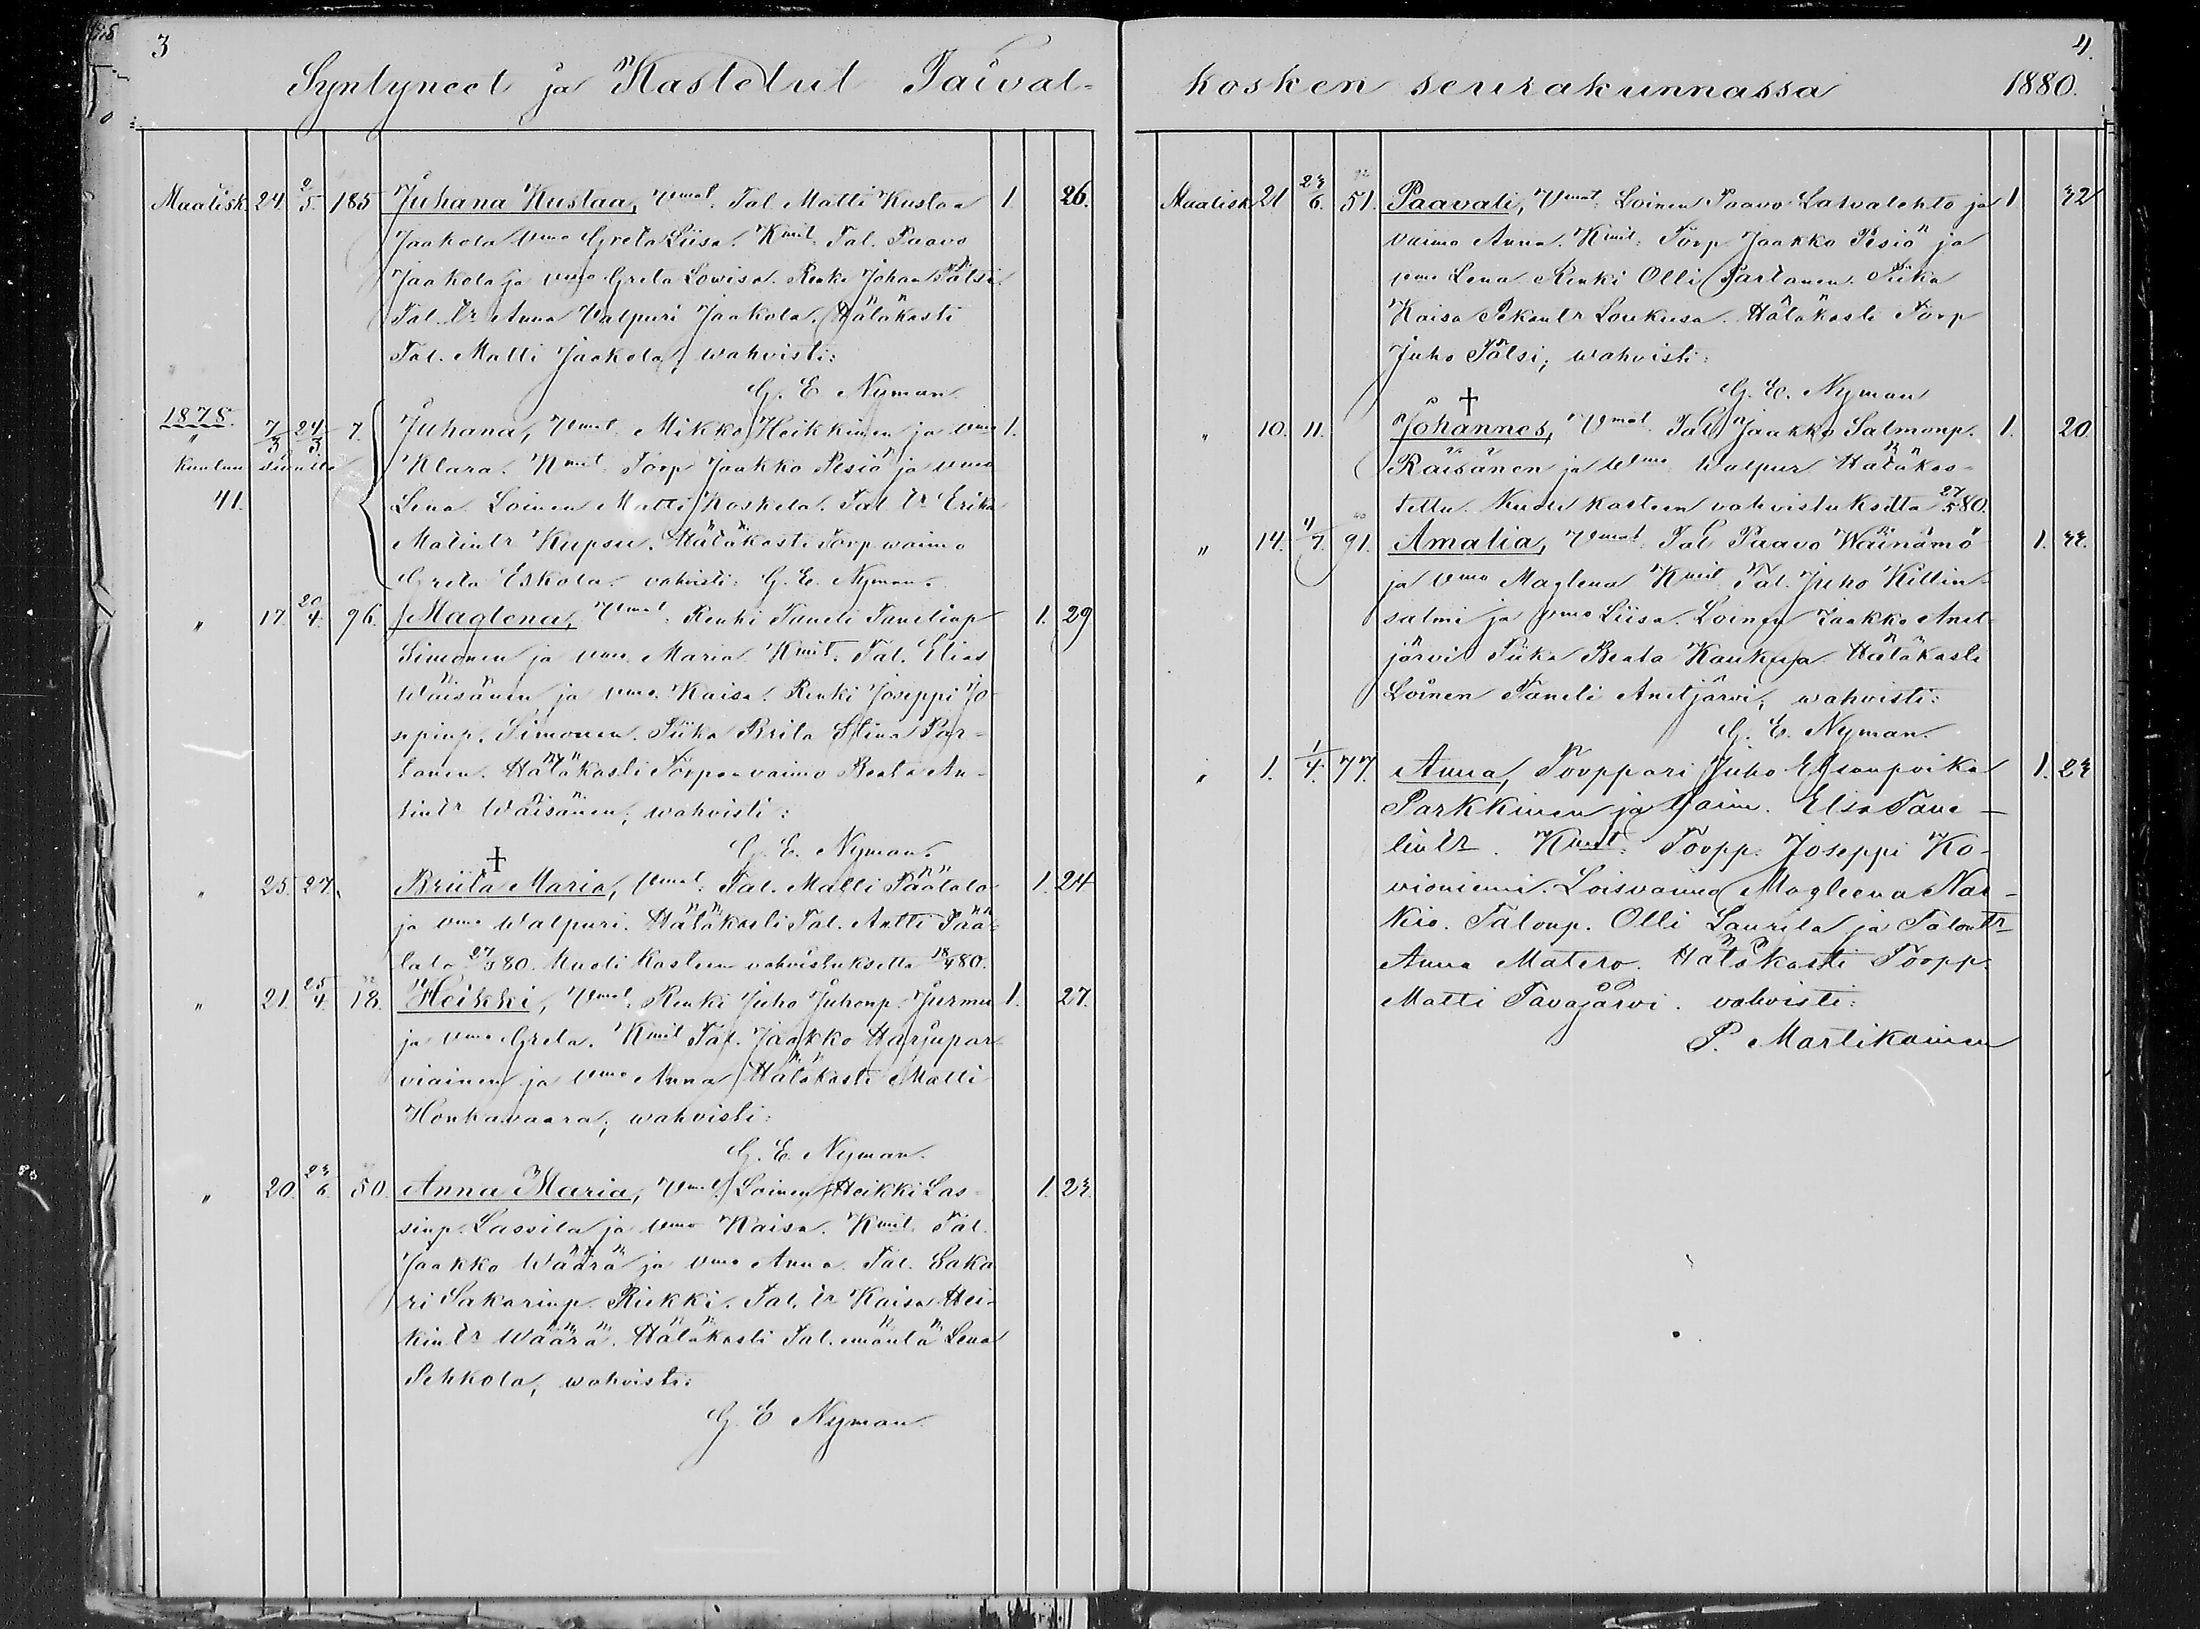 3
Syntyneet ja Kastetut Taival-
Maalisk. 24. 2/5. 185 Juhana Kustaa, Vmat. Tal. Matti Kustaa 1. 26.
Jaakola Vmo Greta Liisa. Kmit. Tal. Paavo
Jaakola ja vmo Greta Lowisa. Renki Johan Tälsi.
Tal. tr Anna Valpuri Jaakola. Hätäkasti
Tal. Matti Jaakola, wahvisti:
G. E. Nyman
1878.
" 7/3 24/3 7. Juhana, Vmat. Mikko Heikkinen ja vmo 1.
kuulun Klara. Kmit. Torp. Jaakko Pesiö ja vmo
41. Lena. Loinen Matti Koskela. Tal. tr Erika
Matintr Kupsu. Hätäkasti Torp. waimo
Greta Eskola. vahvisti: G. E. Nyman.
" 17. 20/4. 96. Maglena, Vmat. Renki Taneli Tanelinp 1. 29
Simonen ja vmo Maria. Kmit. Tal. Elias
Wäisänen ja vmo. Kaisa. Renki Joseppi Jo-
sepinp. Simonen. Piika Brita Stina Par-
tanen. Hätäkasti Torpan vaimo Beata An-
tintr Wäisänen, wahvisti:
G. E. Nyman.
†
" 25. 27. Briita Maria, Vmat. Tal. Matti Päätalo 1. 24
ja vmo Walpuri. Hätäkasti Tal. Antti Pää-
talo 27/3 80. Kuoli Kasteen vahvistuksetta 18/4 80.
" 21. 25/4. 18. Heikki, Vmat. Renki Juho Juhonp. Jurmu 1. 27.
ja vmo Greta. Kmit Tal. Jaakko Harjupar-
viainen ja vmo Anna. Hätäkasti Matti
Honkavaara, wahvisti:
G. E. Nyman.
" 20. 23/6. 50. Anna Maria, Vmat. Loinen Heikki Las- 1. 23.
sinp. Lassila ja vmo Kaisa. Kmit. Tal.
Jaakko Wäärä ja vmo Anna. Tal. Saka-
ri Sakarinp. Riekki. Tal. tr Kaisa Hei-
kintr Wäärä. Hätäkasti Tal. emäntä Lena
Sehkola, wahvisti:
G. E. Nyman.
4.
kosken seurakunnassa 1880.
Maalisk 21 23/6. 51. Paavali, Vmat. Loinen Paavo Latvalehto ja 1 32
vaimo Anna. Kmit: Torp. Jaakko Pesiö ja
vmo Lena. Renki Olli Partanen. Piika
Kaisa Pekantr Loukusa. Hätäkasti Torp
Juho Tälsi, wahvisti:
G. E. Nyman
†
" 10. 11. Johannes, Vmat. Tal. Jaakko Salmonp. 1. 20.
Räisänen ja Wmo Walpur. Hätäkas-
tettu. Kuoli kasteen vahvistuksetta 27/5 80.
" 14. 4/7. 91. Amalia, Vmat. Tal Paavo Wäinämö 1. 33.
ja Vmo Maglena. Kmit. Tal. Juho Killin-
salmi ja vmo Liisa. Loinen Jaakko Anet-
järvi Piika Beata Kaukua. Hätäkasti
Loinen Taneli Anetjärvi, wahvisti:
G. E. Nyman.
" 1. 1/4. 77. Anna, Torppari Juho Esanpoika 1. 23
Parkkinen ja Vaim. Elsa Tane-
lintr. Kmt. Torpp. Joseppi Ko-
vioniemi. Loisvaimo Magleena Nar-
kio. Talonp. Olli Laurila ja Talontr
Anna Matero. Hätäkasti Torpp.
Matti Tavajärvi. vahvisti:
P. Martikainen